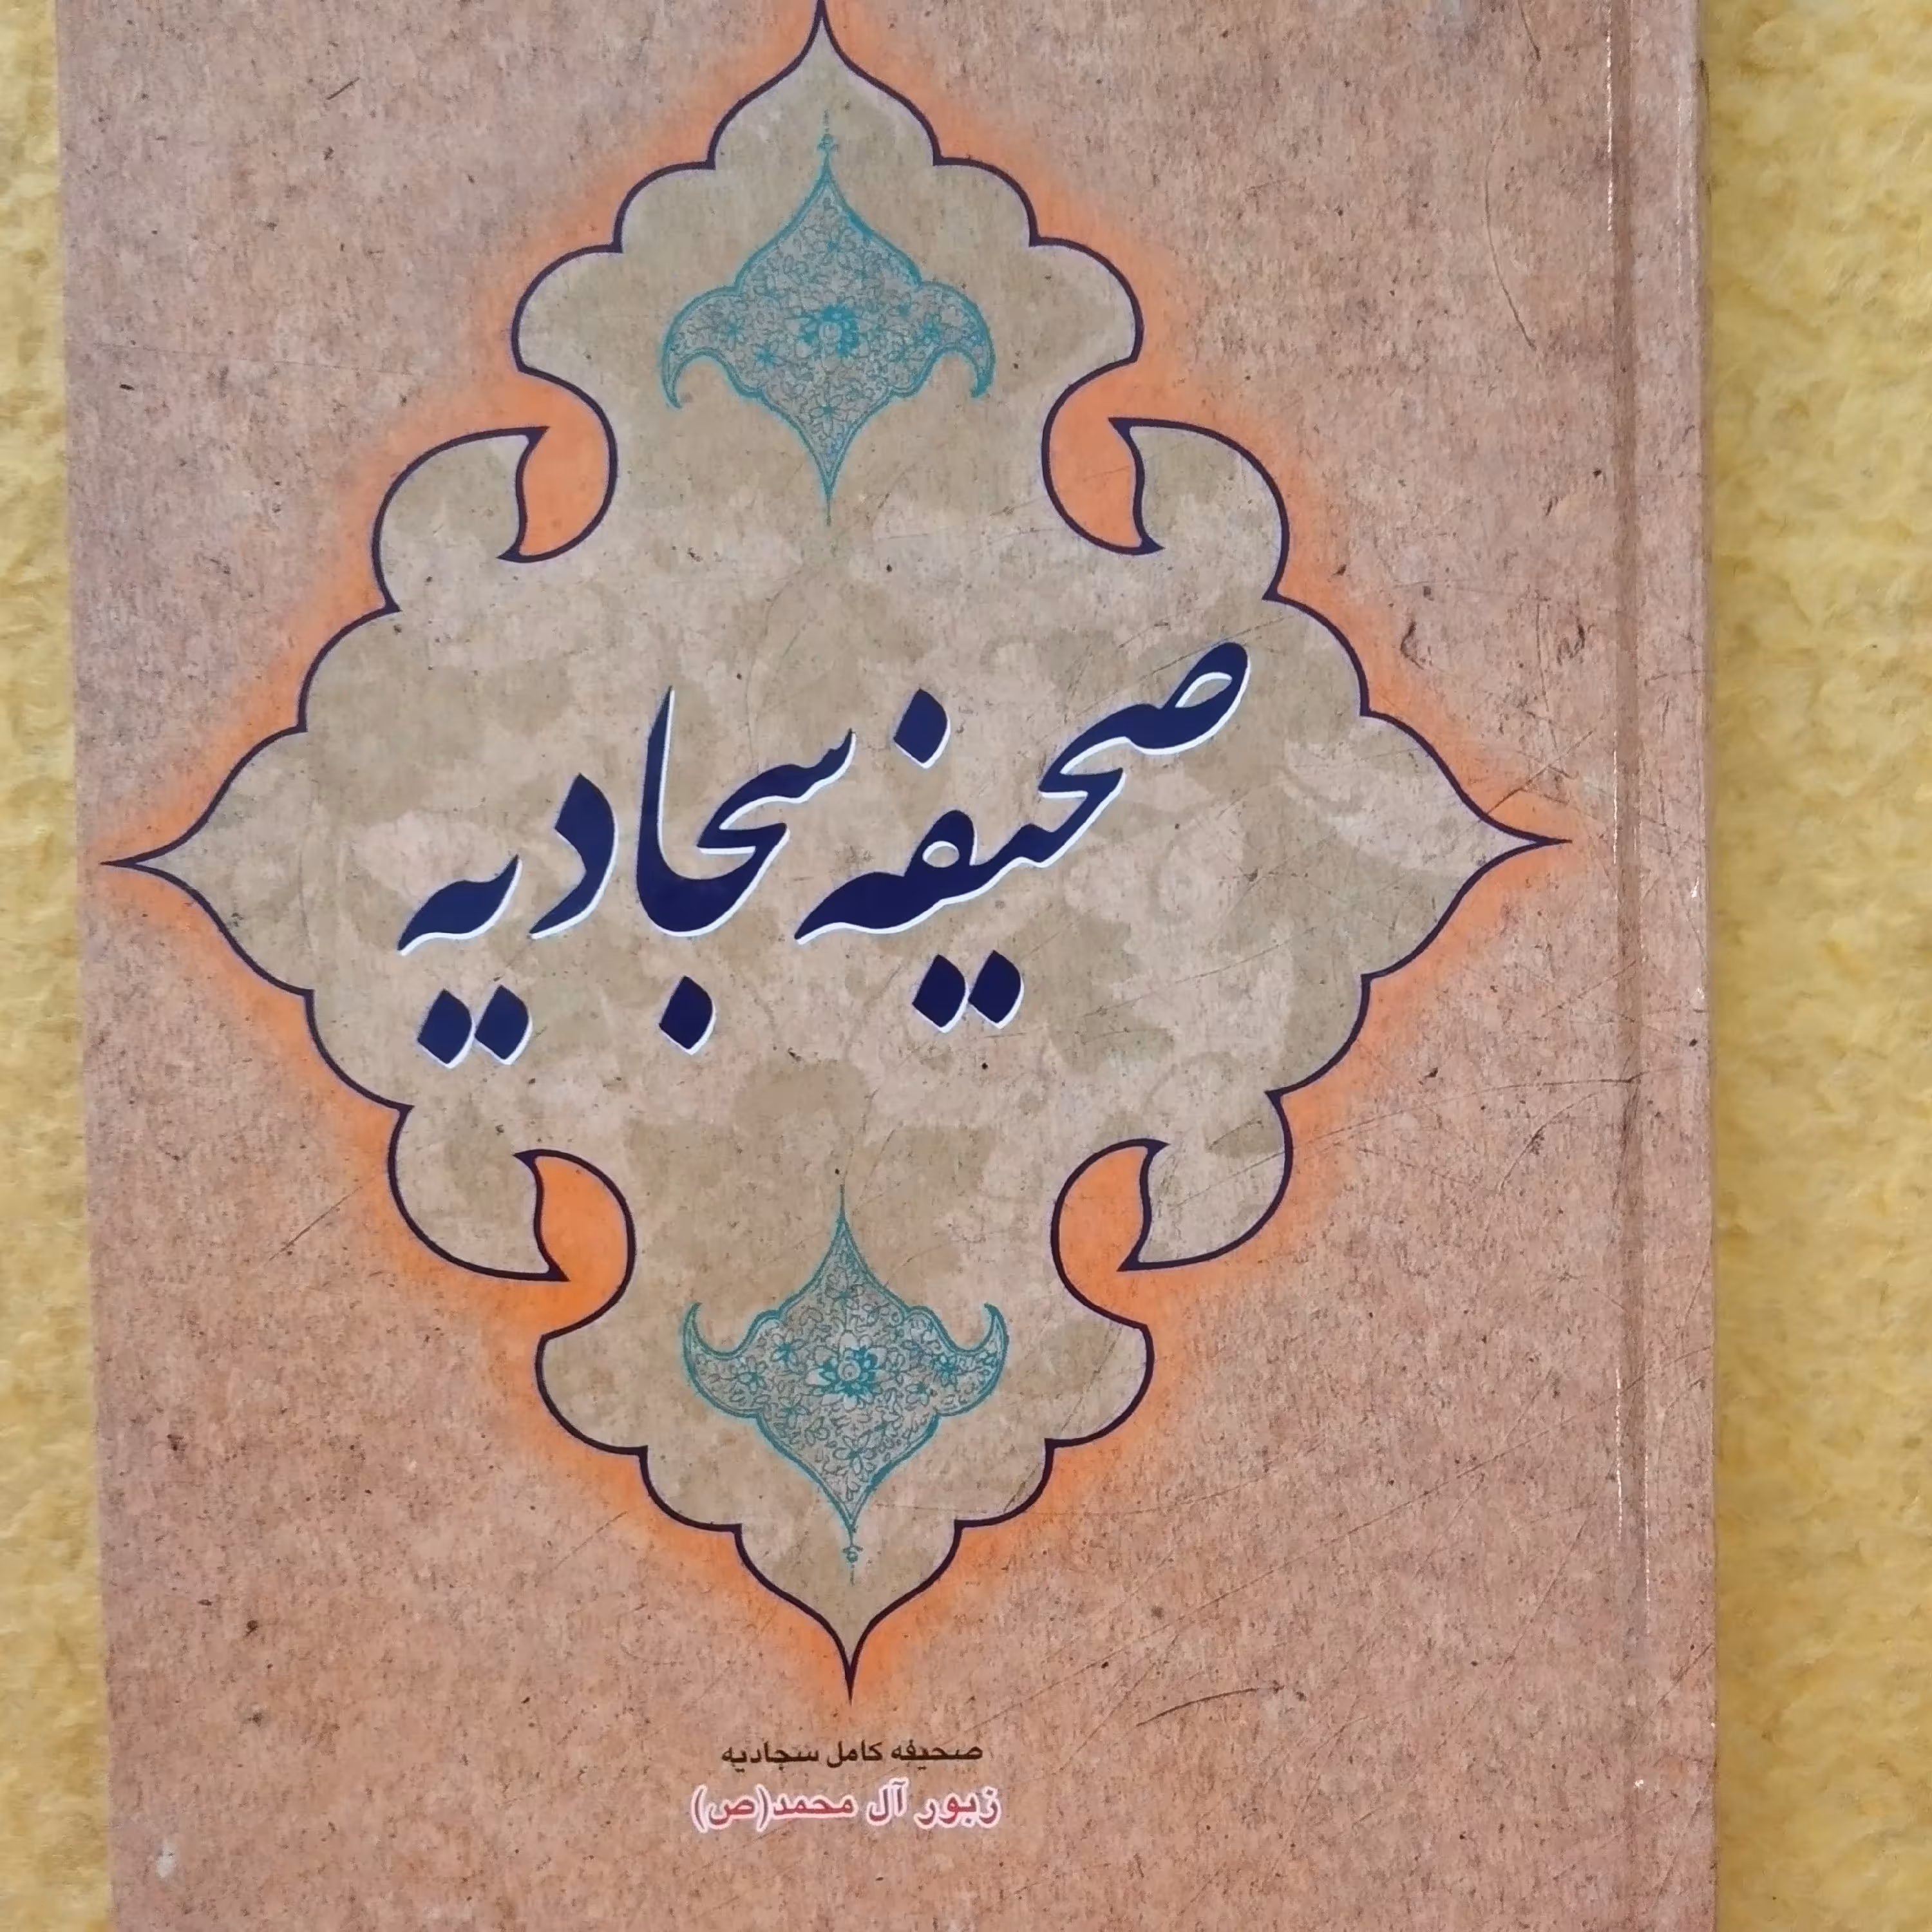 صحیفه سجادیه
صحیفه کامل سجادیه
زبور آل محمد(ص)